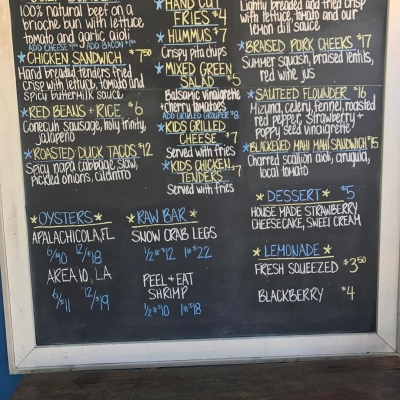 100% natural beef on a
brioche bun with lettuce
tomato and garlic aioli
ADD CHEESE ADD BACON
CHICKEN SANDWICH $7.50
Hand breaded tenders fried
crisp with lettuce, tomato and
spicy buttermilk sauce
RED BEANS + RICE $6
Conecuh sausage, holy trinity,
jalapeno
ROASTED DUCK TACOS $12
Spicy napa cabbage slaw,
pickled onions, cilantro
HAND CUT
FRIES $4
HUMMUS $7
Crispy pita chips
MIXED GREEN
SALAD $5
Balsamic vinaigrette
+ cherry tomatoes
ADD GRILLED GROUPER $8
KIDS GRILLED
CHEESE $7
Served with fries
KIDS CHICKEN
TENDERS $7
Served with fries
Lightly breaded and fried crisp
with lettuce, tomato and our
lemon dill sauce
BRAISED PORK CHEEKS $17
Summer squash, braised lentils,
red wine jus
SAUTEED FLOUNDER $16
Mizuna, celery, fennel, roasted
red pepper, strawberry +
poppy seed vinaigrette
BLACKENED MAHI MAHI SANDWICH $15
Charred scallion aioli, arugula,
local tomato
OYSTERS
APALACHICOLA, FL
6/$10 12/$18
AREA 10, LA
6/$11 12/$19
RAW BAR
SNOW CRAB LEGS
1/2# $12 1# $22
PEEL + EAT
SHRIMP
1/2# $10 1# $18
DESSERT $5
HOUSE MADE STRAWBERRY
CHEESECAKE, SWEET CREAM
LEMONADE
FRESH SQUEEZED $3.50
BLACKBERRY $4